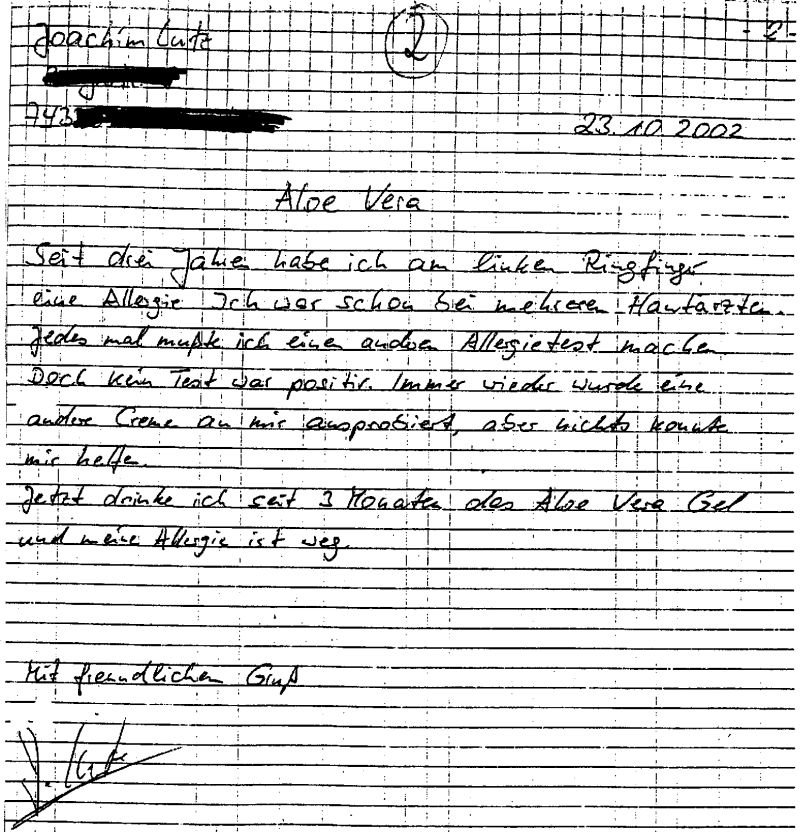 Joachim Lutz
2
- 2 -
743
23.10.2002
Aloe Vera
Seit drei Jahren habe ich am linken Ringfinger
eine Allergie Ich war schon bei mehreren Hautärzten.
Jedes mal mußte ich einen anderen Allergietest machen
Doch kein Test war positiv. Immer wieder wurde eine
andere Creme an mir ausprobiert, aber nichts konnte
mir helfen.
Jetzt drinke ich seit 3 Monaten das Aloe Vera Gel
und meine Allergie ist weg.
Mit freundlichem Gruß
J. Lutz